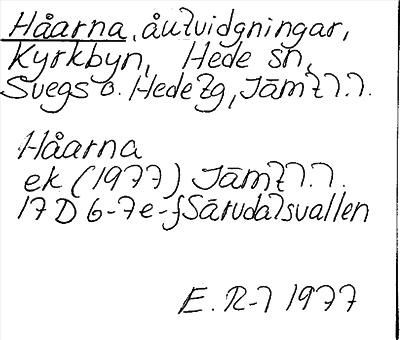 Håarna, åutvidgningar,
Kyrkbyn, Hede sn,
Svegs o. Hede tg, Jämtl.l.
Håarna
ek (1977) Jämtl.l.
17 D 6-7e-f Särudalsvallen
E. R-l 1977